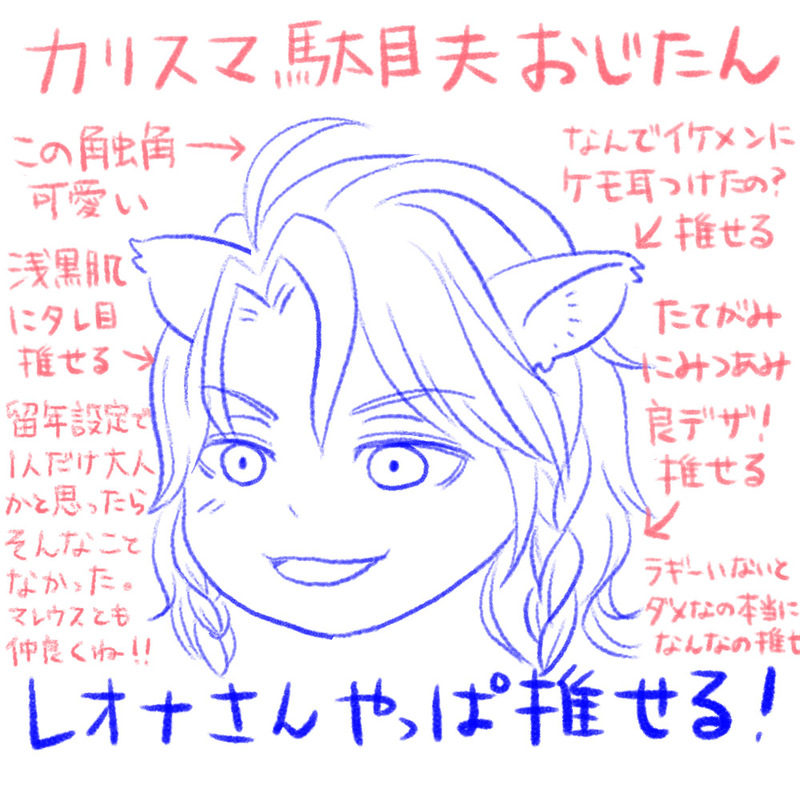 カリスマ駄目夫おじたん
この触角→
可愛い
浅黒肌
にタレ目
推せる→
留年設定で
1人だけ大人
かと思ったら
そんなこと
なかった。
マレウスとも
仲良くね!!
なんでイケメンに
ケモ耳つけたの?
↙推せる
たてがみ
にみつあみ
良デザ!
推せる
↙
ラギーいないと
ダメなの本当に
なんなの推せ
レオナさんやっぱ推せる!